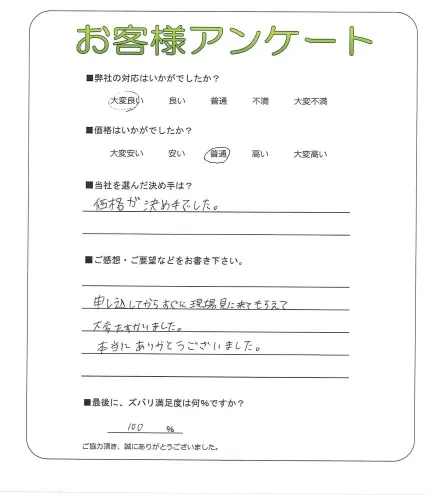 お客様アンケート
■弊社の対応はいかがでしたか？
大変良い 良い 普通 不満 大変不満
■価格はいかがでしたか？
大変安い 安い 普通 高い 大変高い
■当社を選んだ決め手は？
価格が決め手でした。
■ご感想・ご要望などをお書き下さい。
申し込してからすぐに現場見に来てもらえて
大変たすかりました。
本当にありがとうございました。
■最後に、ズバリ満足度は何%ですか？
100 %
ご協力頂き、誠にありがとうございました。